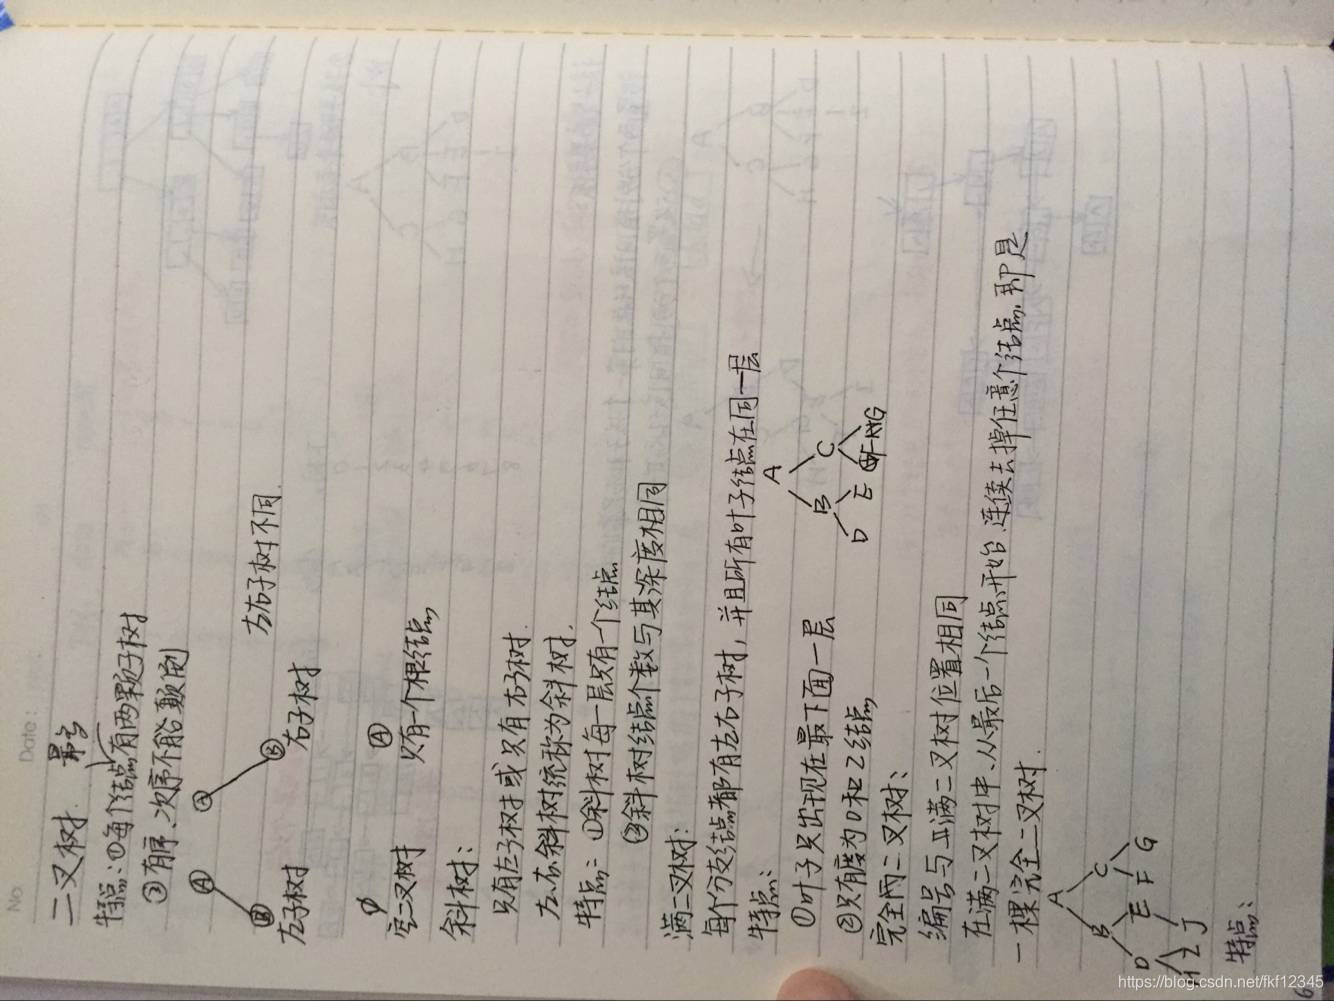 No.
Date:
二叉树
特点:①每个结点最多有两颗子树
②有序、次序不能颠倒
A A
B B
左子树 右子树 左右子树不同
φ A
空二叉树 只有一个根结点
斜树:
只有左子树或只有右子树.
左、右斜树统称为斜树.
特点:①斜树每一层只有一个结点
②斜树结点个数与其深度相同
满二叉树:
每个分支结点都有左右子树，并且所有叶子结点在同一层
特点:
①叶子只出现在最下面一层
②只有度为0和2结点
A
B C
D E F G
完全二叉树:
编号与满二叉树位置相同
在满二叉树中、从最后一个结点开始、连续去掉任意个结点,即是
一棵完全二叉树.
A
B C
D E F G
H I J
特点:
https://blog.csdn.net/fkf12345